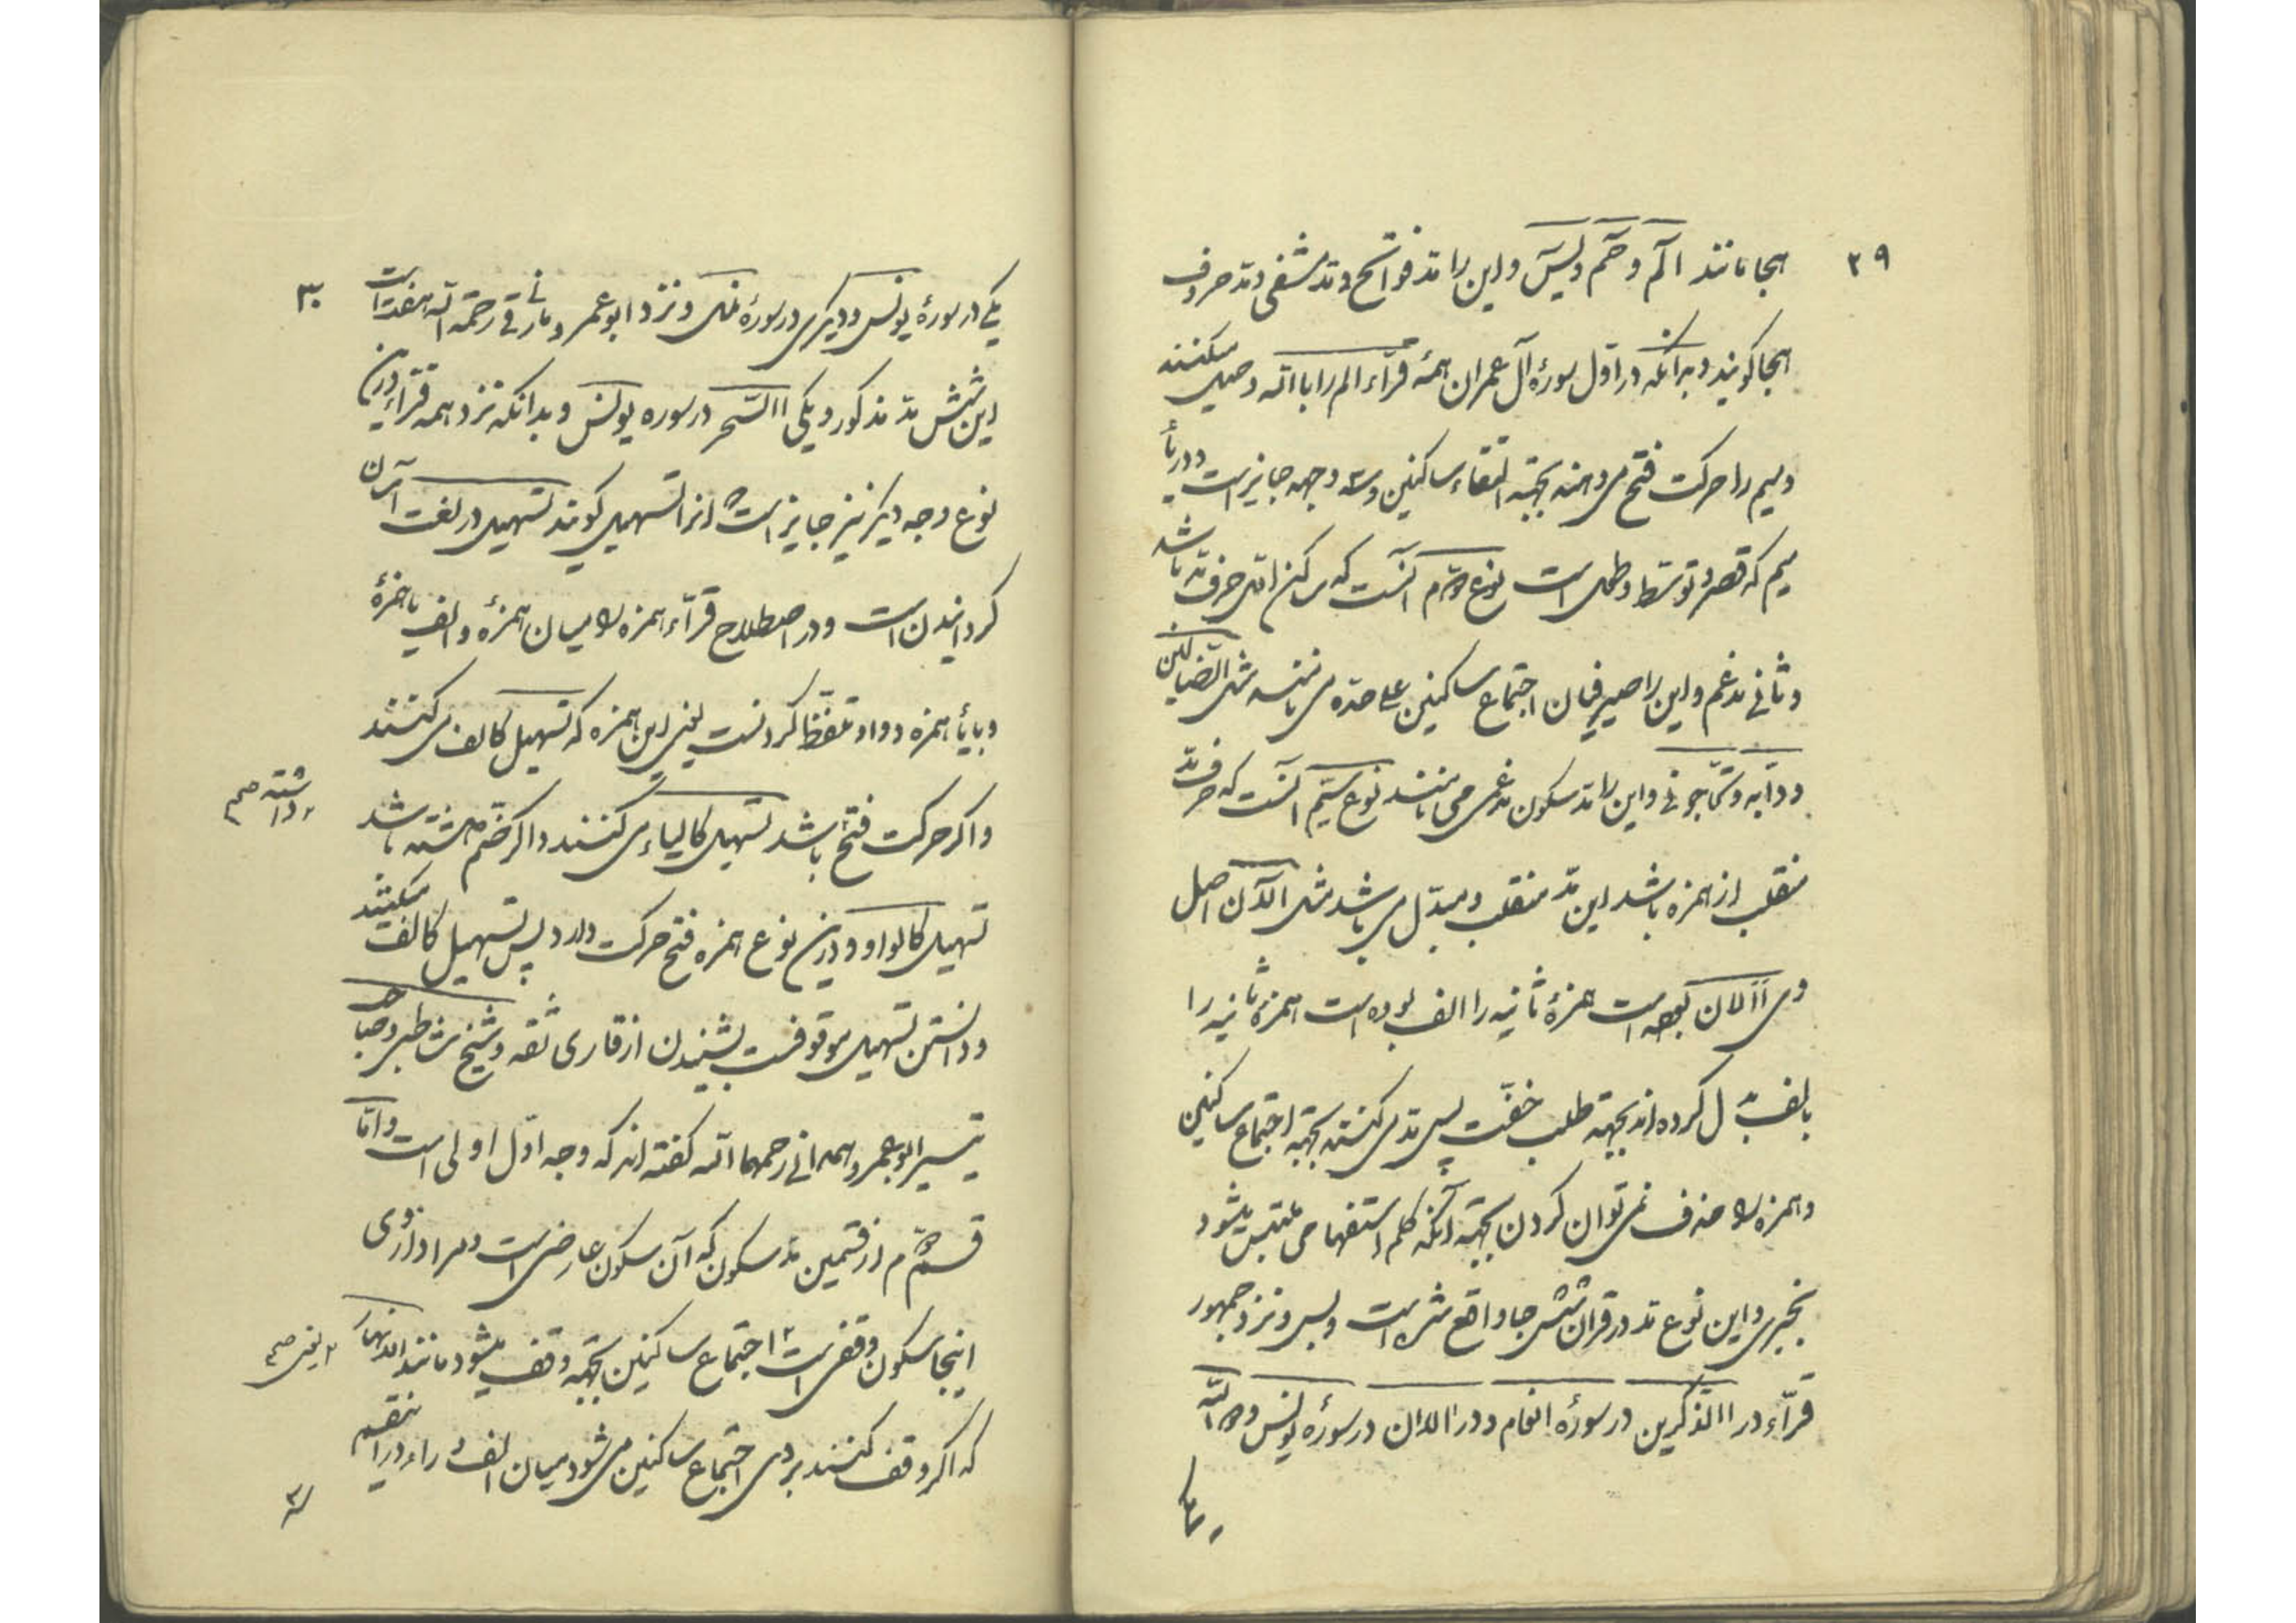 ۲۹
هجا مانند الٓمٓ و حٰمٓ و یٰسٓ و این را مد فواتح و مد شفعی و مد حروف
هجا کویند و بدانکه در اول سورهٔ آل عمران همهٔ قرّاء الم را با الله وصل میکنند
و میم را حرکت فتح می دهند بجهته التقاء ساکنین و سه وجه جایز است در یاء
میم که قصر و توسط و طول است نوع دوم آنست که ساکن اول حرف مد باشد
و ثانی مدغم و این را صیرفیان اجتماع ساکنین علی حده می نامند مثل الضالین
و دآبه و تحآجونی و این را مد سکون مدغمی می نامند نوع سیّم آنست که حرف مد
منقلب از همزه باشد این مد منقلب و مبدّل می باشد مثل آلآن اصل
وی أألان بوده است همزهٔ ثانیه را الف بوده است همزهٔ ثانیه را
بالف بدل کرده اند بجهته طلب خفّت پس مد می کنند بجهته اجتماع ساکنین
و همزه را حذف نمی توان کردن بجهته آنکه کلمه استفهامی ملتبس میشود
بخبری و این نوع مد در قران شش جا واقع شده است و بس و نزد جمهور
قرّاء در االذکرین در سورهٔ انعام و در االان در سورهٔ یونس و در االله
یکی
۳۰
یکی در سورهٔ یونس و دیکری در سورهٔ نمل و نزد ابو عمرو مازنی رحمة الله هفت است
این شش مد مذکور و یکی االسّحر در سوره یونس و بدانکه نزد همه قرّاء درین
نوع وجه دیکر نیز جایز است و انرا تسهیل کویند تسهیل در لغت آسان
کردانیدن است و در اصطلاح قرّاء همزه را میان همزهٔ و الف یا همزهٔ
و یاء یا همزه و واو تلفظ کردنست یعنی این همزه که تسهیل کالف می کنند
و اکر حرکت فتح باشد تسهیل کالیاء می کنند و اکر ضم داشته باشد
داشته صح
تسهیل کالواو و درین نوع همزه فتح حرکت دارد پس تسهیل کالف میکنند
و دانستن تسهیل موقوفست بشنیدن از قاری ثقه و شیخ شاطبی و صاحب
تیسیر ابو عمرو همدانی رحمهما الله کفته اند که وجه اوّل اولی است و امّا
قسم دوم از قسمین مد سکون که آن سکون عارضی است و مراد از وی
اینجا سکون وقفی است اجتماع ساکنین بجهته وقف میشود مانند النهار
یعنی صح
که اکر وقف کنند بر وی اجتماع ساکنین می شود میان الف و راء و درین قسم